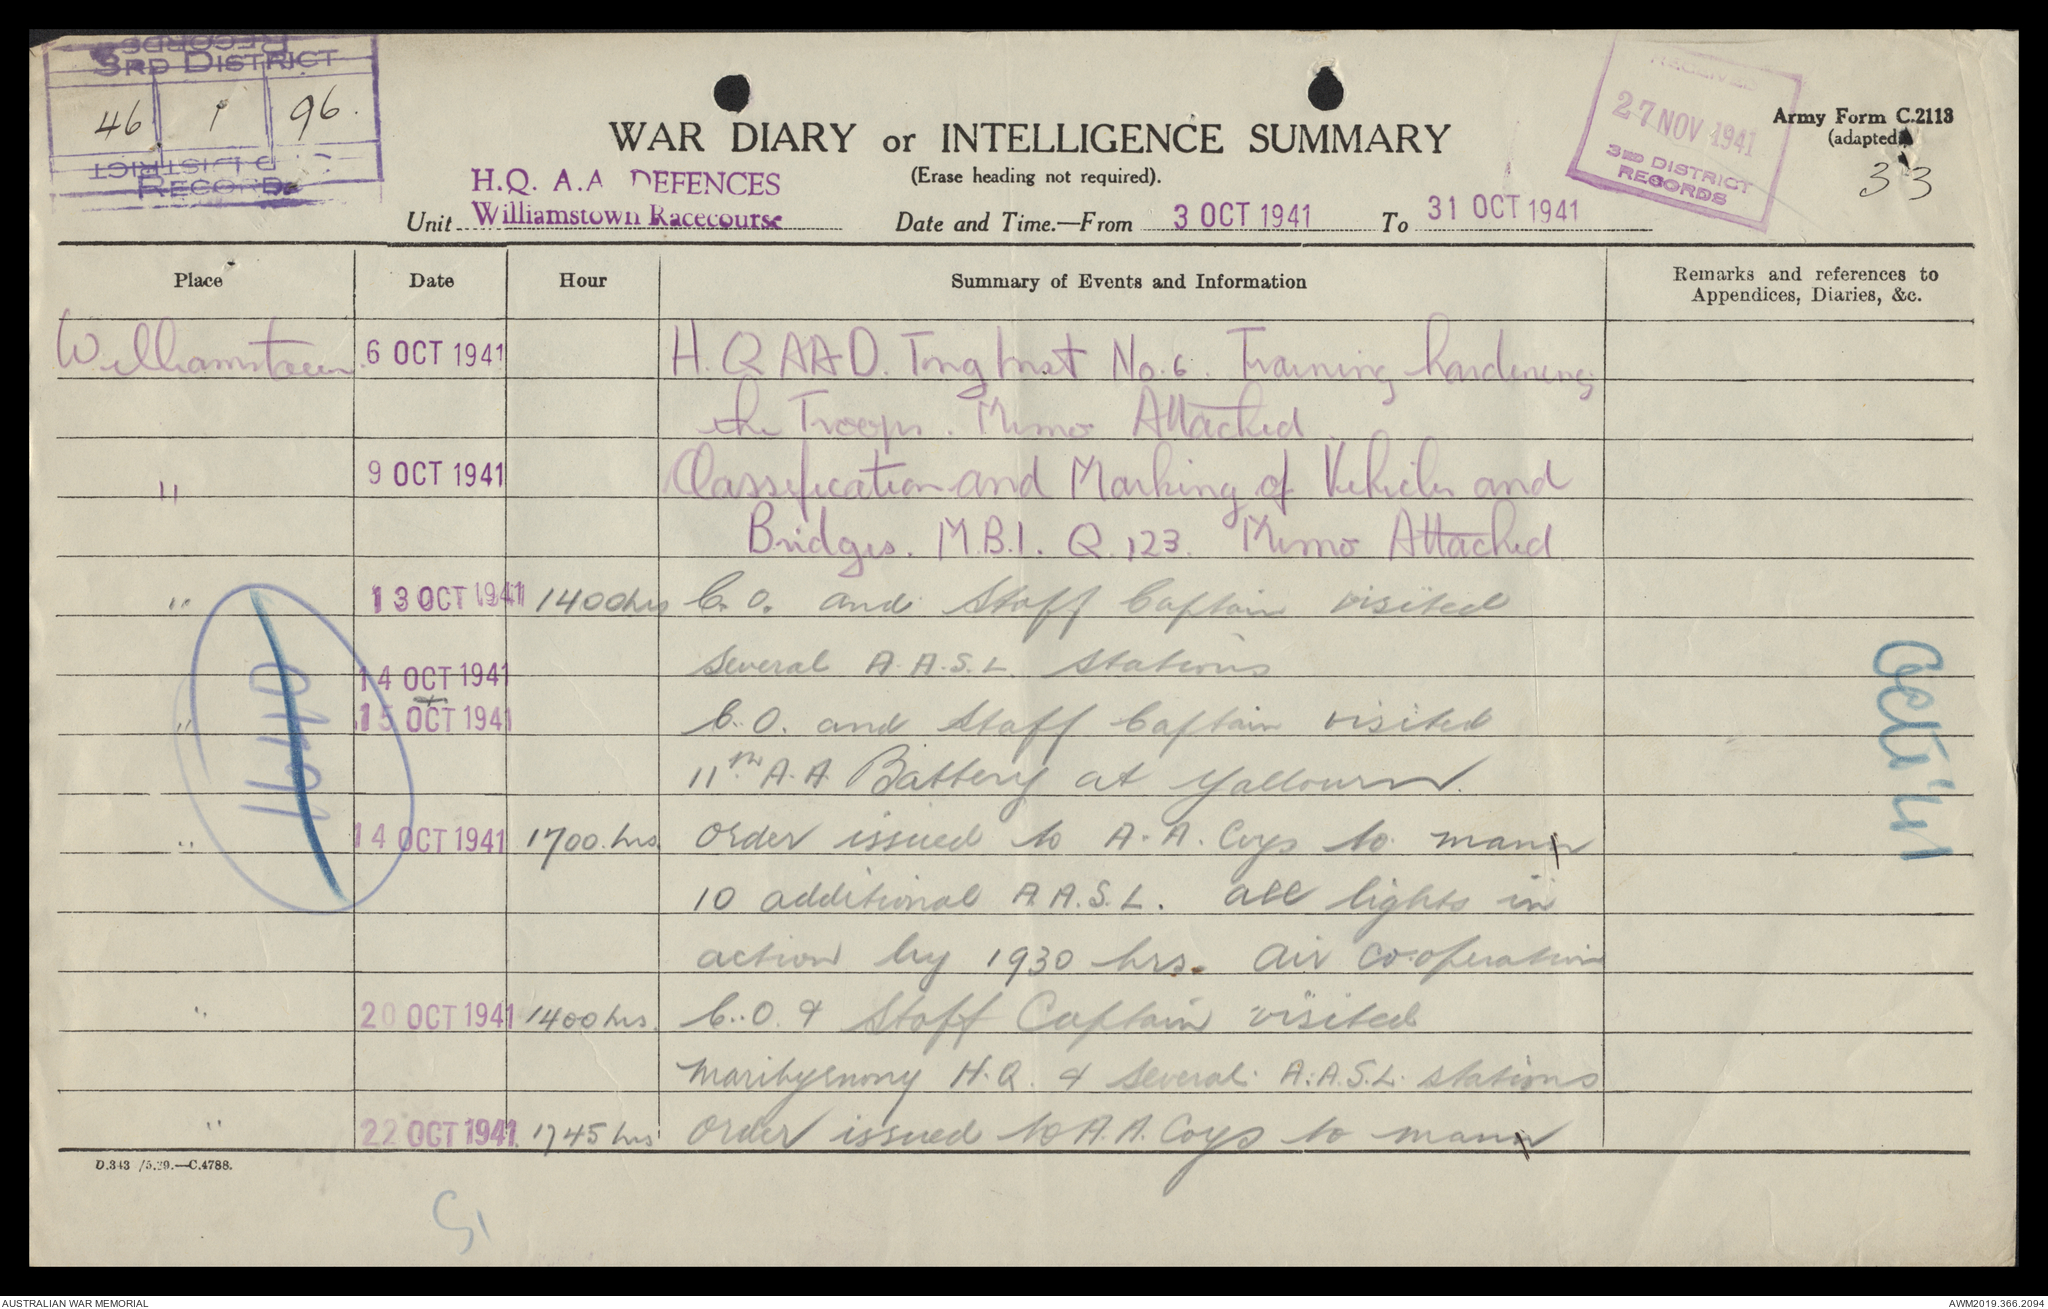 RECORDS
3RD DISTRICT
46 1 96.
3RD DISTRICT
RECORDS
RECEIVED
27 NOV 1941
3RD DISTRICT
RECORDS
Army Form C.2118
(adapted)
33
WAR DIARY or INTELLIGENCE SUMMARY
(Erase heading not required).
H.Q. A.A. DEFENCES
Unit Williamstown Racecourse Date and Time.—From 3 OCT 1941 To 31 OCT 1941
Place Date Hour Summary of Events and Information Remarks and references to
Appendices, Diaries, &c.
Williamstown 6 OCT 1941 H.Q AAD. Tng Inst No. 6. Training hardening
the Troops. Memo Attached
" 9 OCT 1941 Classification and Marking of Vehicles and
Bridges. M.B.I. Q.123. Memo Attached
" 13 OCT 1941 1400hrs C.O. and Staff Captain visited
several A.A.S.L. stations
14 OCT 1941
+
" 15 OCT 1941 C.O. and Staff Captain visited
11th A.A Battery at Yallourn.
" 14 OCT 1941 1700 hrs Order issued to A.A. Coys to man
10 additional A.A.S.L. All lights in
action by 1930 hrs. Air co-operation
" 20 OCT 1941 1400 hrs. C.O. & Staff Captain visited
Maribyrnong H.Q. & several A.A.S.L. stations
" 22 OCT 1941 1745 hrs Order issued to A.A. Coys to man
D.343/5.39.—C.4788.
AUSTRALIAN WAR MEMORIAL
AWM2019.366.2094